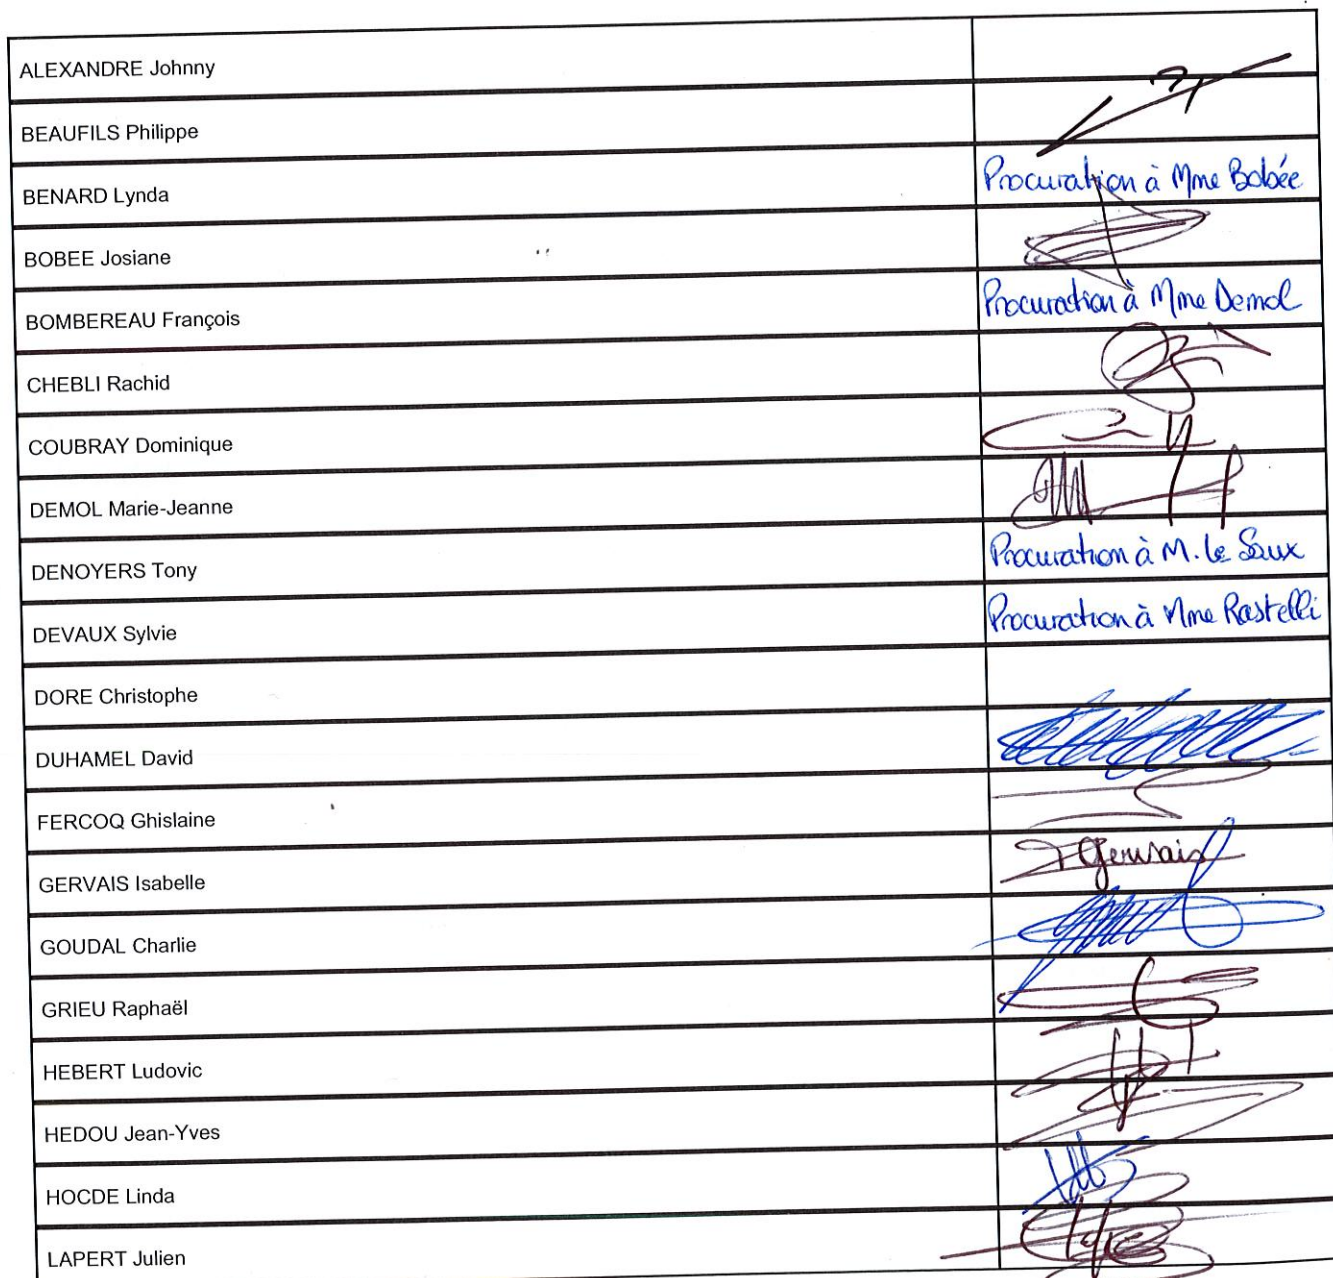 ALEXANDRE Johnny
BEAUFILS Philippe
BENARD Lynda Procuration à Mme Bobée
BOBEE Josiane
BOMBEREAU François Procuration à Mme Demol
CHEBLI Rachid
COUBRAY Dominique
DEMOL Marie-Jeanne
DENOYERS Tony Procuration à M. Le Saux
DEVAUX Sylvie Procuration à Mme Rastelli
DORE Christophe
DUHAMEL David
FERCOQ Ghislaine
GERVAIS Isabelle Gervais
GOUDAL Charlie
GRIEU Raphaël
HEBERT Ludovic
HEDOU Jean-Yves
HOCDE Linda
LAPERT Julien